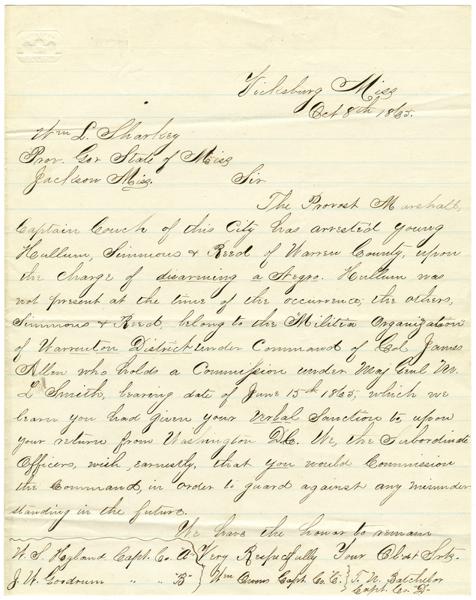 Vicksburg Miss
Oct 8th 1865.
Wm L. Sharkey
Prov. Gov State of Miss
Jackson Miss. Sir
The Provost Marshall,
Captain Couch of this City has arrested young
Hullum, Simmons & Reed of Warren County, upon
the charge of disarming a Negro. Hullum was
not present at the time of the occurrence, the others,
Simmons & Reed, belong to the Militia Organization
of Warrenton District under Command of Col James
Allen who holds a Commission under Maj Genl M.
L Smith, bearing date of June 15th 1865, which we
learn you had given your Verbal Sanction to, upon
your return from Washington D.C. We, the Subordinate
Officers, wish, earnestly, that you would Commission
the Command, in order to guard against any misunder
standing in the future.
We have the honor to remain
W. S. Hyland Capt. Co. A Very Respectfully Your Obdt Srts.
J. W. Gordrum " " "B" Wm Cunns Capt. Co. C. T. W. Batchelor
Capt. Co D.